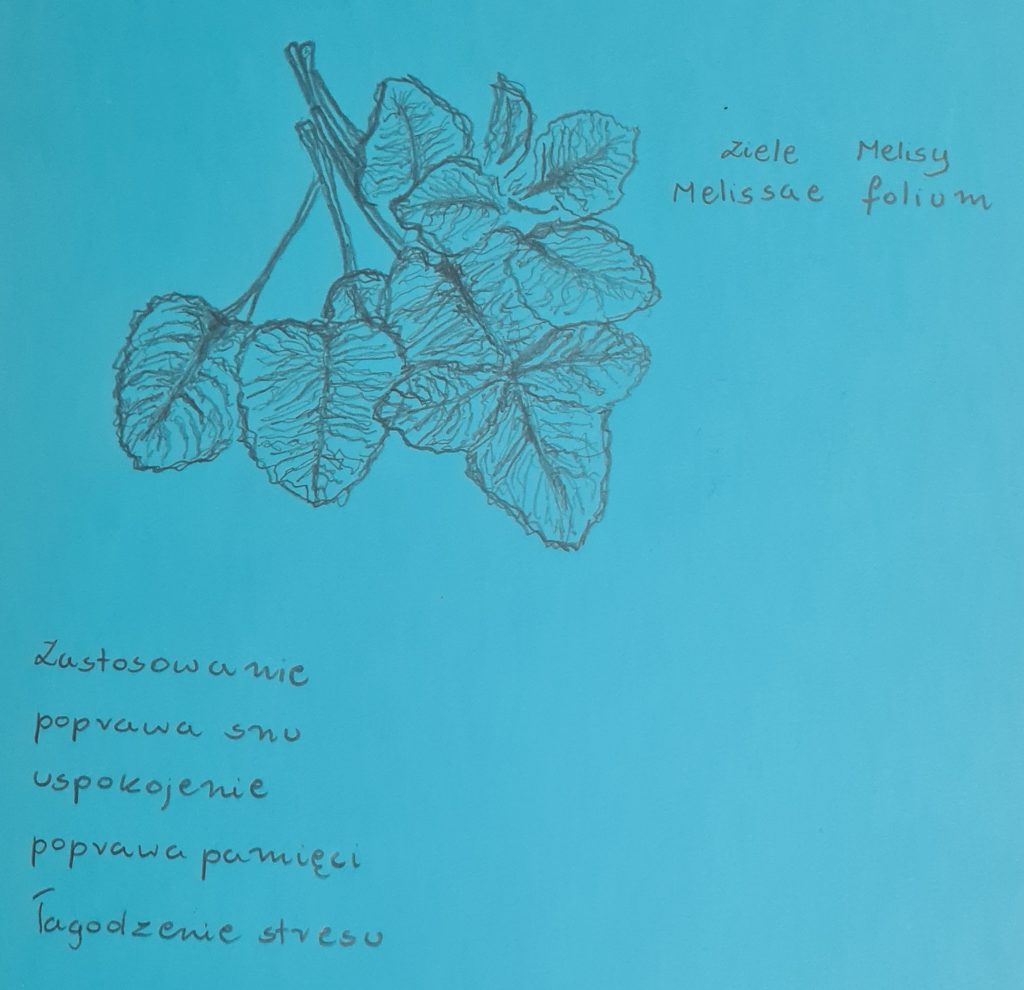 Ziele Melisy
Melissae folium
Zastosowanie
poprawa snu
uspokojenie
poprawa pamięci
łagodzenie stresu